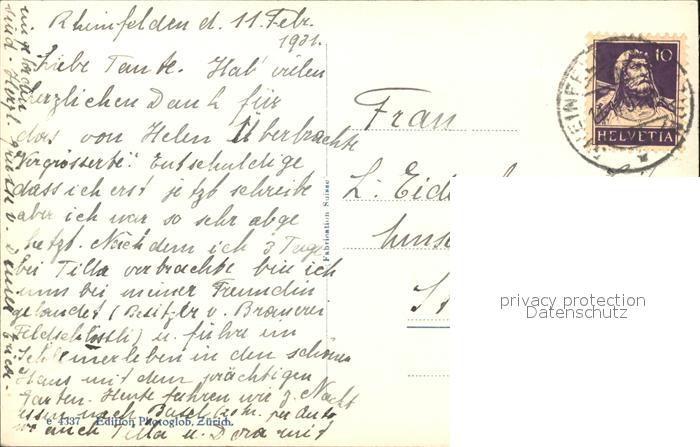 Rheinfelden d. 11. Febr.
1931.
Liebe Tante. Hab' vielen
herzlichen Dank für
das von Helen Überbrachte
"Vergrösserte". Entschuldige
dass ich erst jetzt schreibe
aber ich war so sehr abge
hetzt. Nachdem ich 3 Tage
bei Tilla verbrachte bin ich
nun bei meiner Freundin
gelandet (Besitzer v. Brauerei
Feldschlössli) u. führe ein
Schlemmerleben in den schönen
Haus mit dem prächtigen
Garten. Heute fahren wir z. Nacht
essen nach Basel per Auto
wo auch Tilla u. Dora mit
eingeladen
sind. Herzl. Grüsse v.
Frau
L. Eid
10
HELVETIA
RHEINFE
Fabrication Suisse
e 4337 Edition Photoglob, Zürich.
privacy protection
Datenschutz